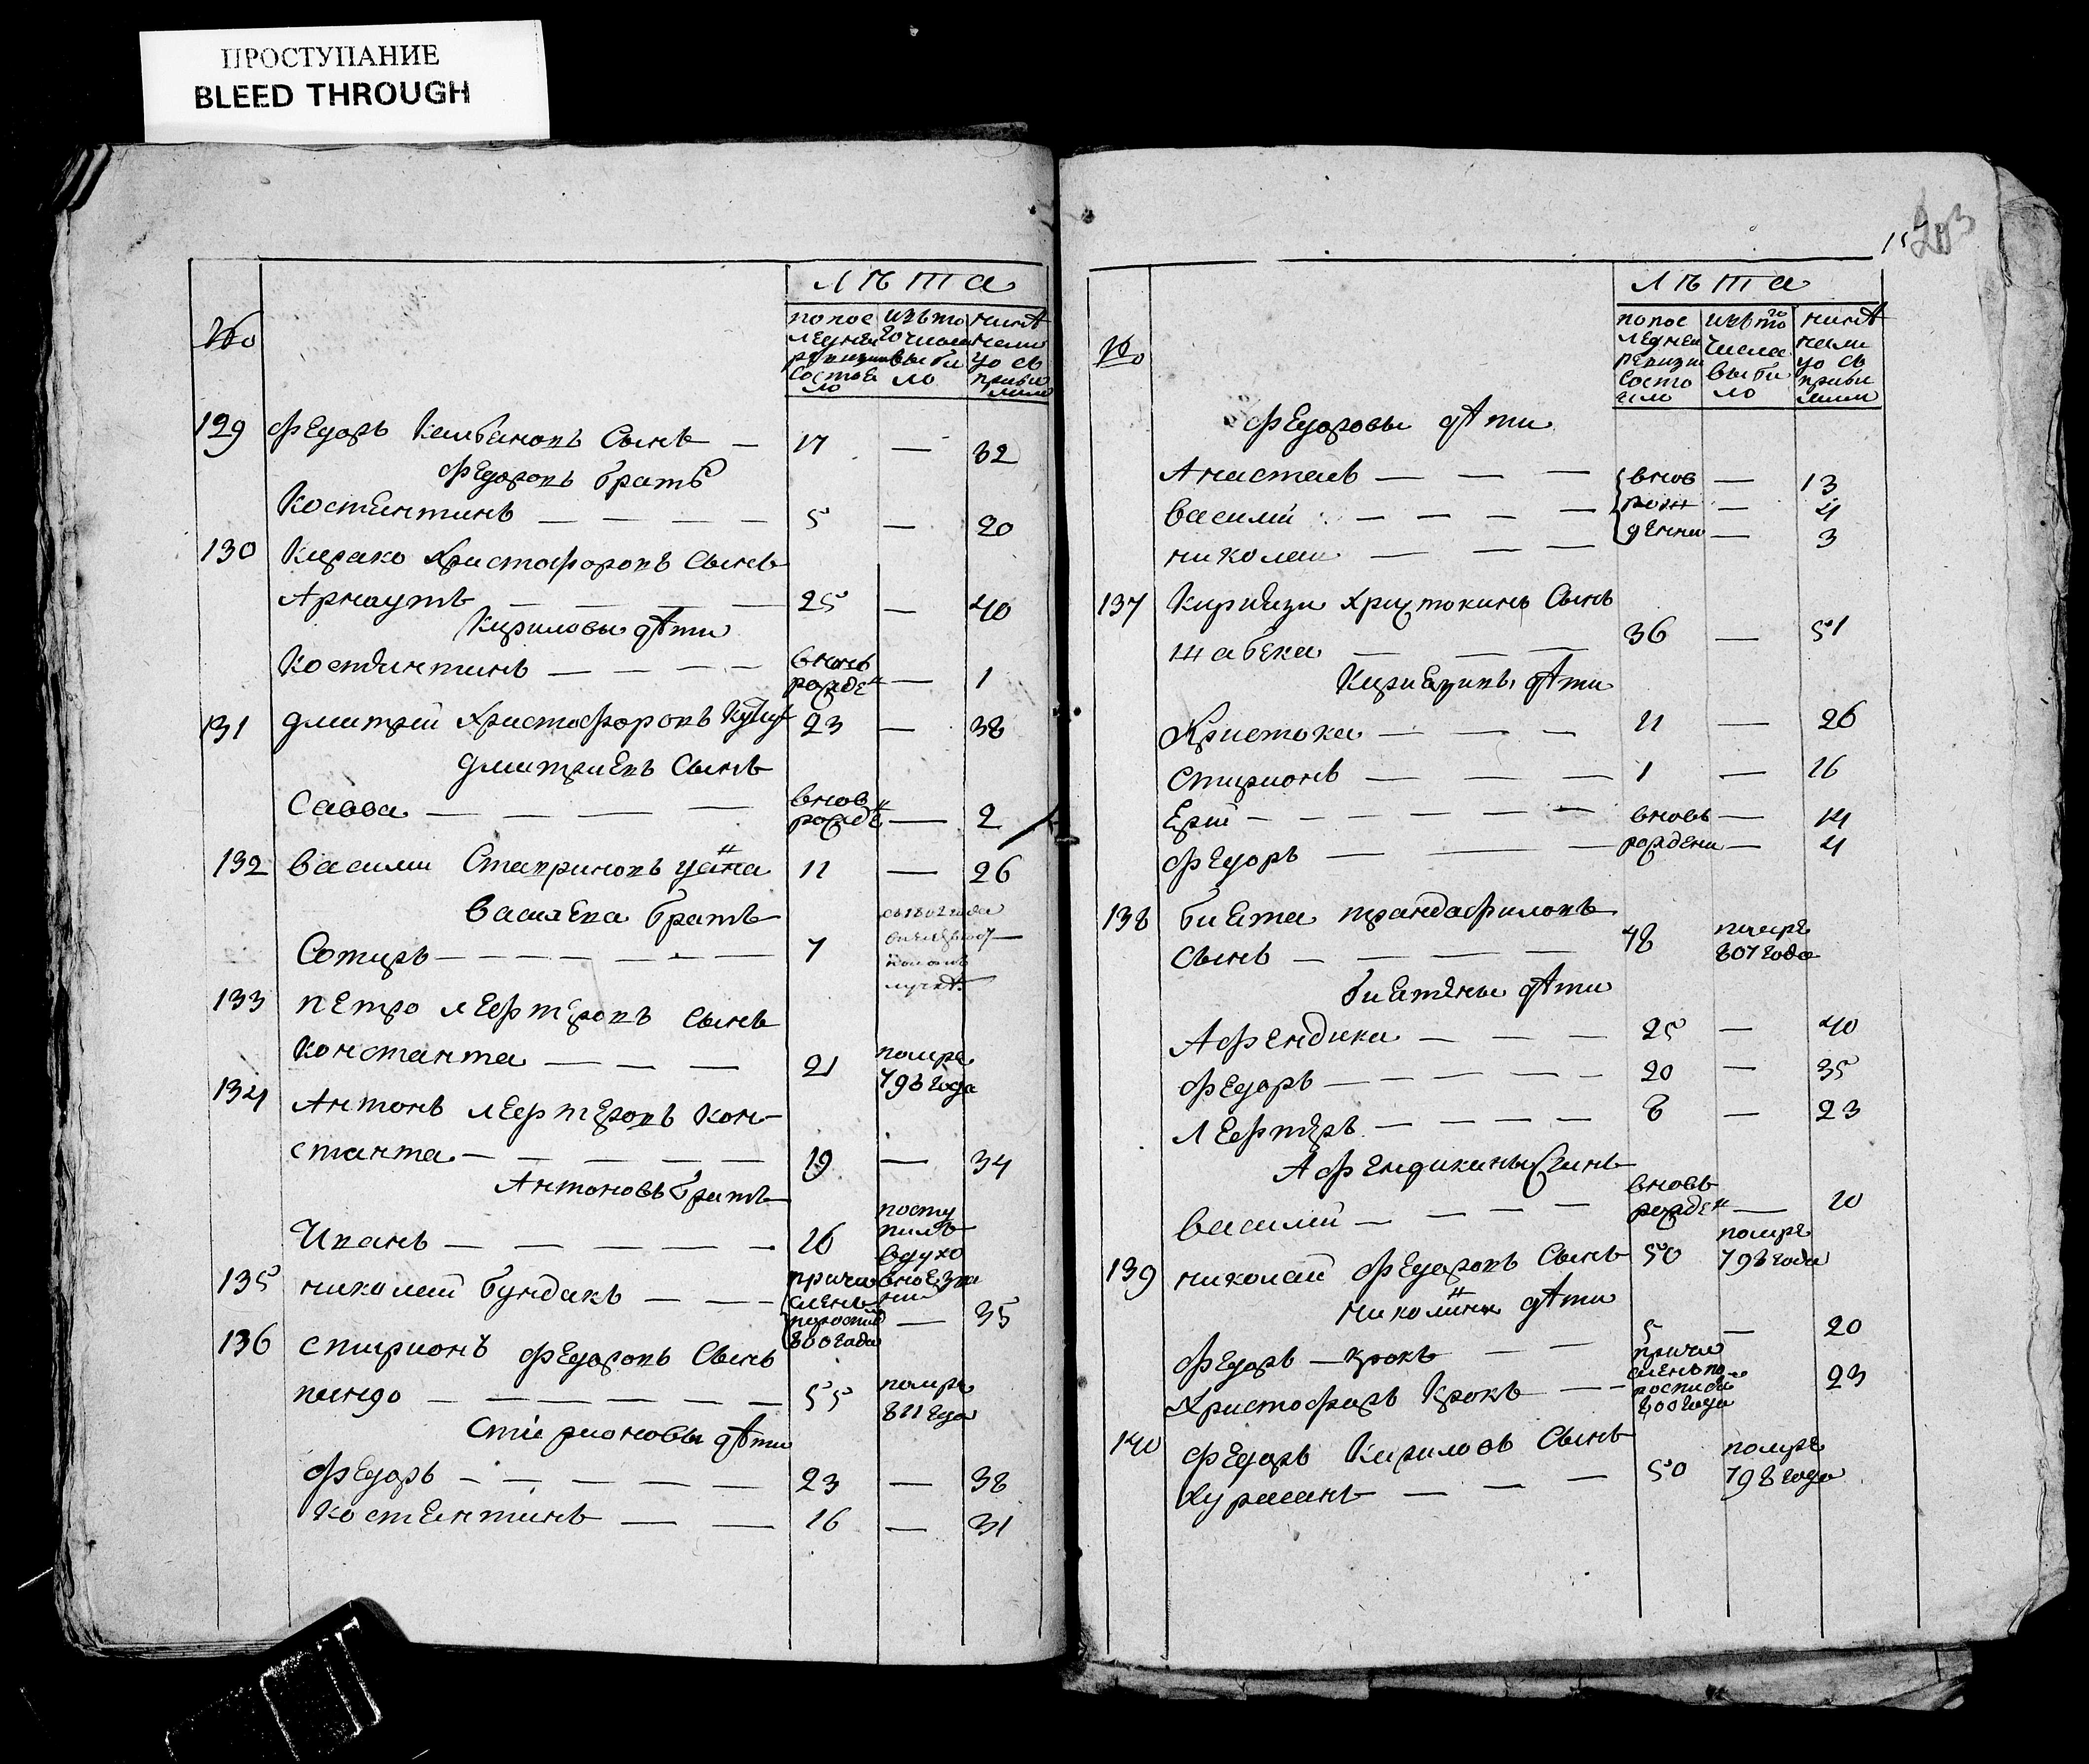 ПРОСТУПАНИЕ
BLEED THROUGH
№
Лѣта
попос изъто нинѣ
ледней гочисла нали
ревизии выбы цо съ
состоя ло прибы
ло лими
129 Федоръ Калбановъ Сынъ — 17 — 32
Федоровъ братъ
Костентинъ — — — — 5 — 20
130 Кирако Христофоровъ Сынъ
Арнаутъ — — — — 25 — 40
Кириловы дѣти
Костянтинъ — — — — вновь
рожден — 1
131 Дмитрїй Христофоровъ 23 — 38
Дмитриевъ Сынъ
Савва — — — — внов
рожден — 2
132 Василии Ставриновъ цана 11 — 26
Васильева братъ
Сотиръ — — — — — — — 7
съ1802 года
133 Петро Лефтеровъ Сынъ
Константа — — — 21 помре
798 года
134 Антонъ Лефтеровъ Кон-
станта — — — — — 19 — 34
Антоновъ братъ
Иванъ — — — — — 16 посту
пилъ
вдухо
вное зва
ние
135 Николай бундакъ — — причи
сленъ
поросписи
800 года — 35
136 Спирионъ Федоровъ Сынъ
пандо — — — — — — 55 помре
811 года
Спирионовы дѣти
Федоръ — — — — — 23 — 38
Костентинъ — — 16 — 31
15 203
№
Лѣта
попос изъ того нинѣ
ледней числа нали
ревизии выбы цо съ
состо ло прибы
яло лими
Федоровы дѣти
Анастасъ — — — внов — 13
Василий — — — — рож — 4
Николаи — — — денни — 3
137 Кириязи Христокинъ Сынъ
шабека — — — 36 — 51
Кириязивы дѣти
Христока — — — 11 — 26
Спирионъ — — — 1 — 16
Ерїй — — — — — — вновь — 14
Федоръ — — — рождени — 4
138 бията трандафиловъ
Сынъ — — — — 48 помре
807 года
биятины дѣти
Афендика — — — 25 — 40
Федоръ — — — — — 20 — 35
Лефтеръ — — — — 8 — 23
Афендикины Сынъ
Василий — — — — вновь
рожден — 10
139 Николай Федоровъ Сынъ 50 помре
798 года
дѣти
Федоръ — крокъ — — 5 — 20
Христофоръ Крокъ — — причи
сленъ по
росписи
800 года — 23
140 Федоръ Кириловъ Сынъ
Хурисанъ — — — 50 помре
798 года